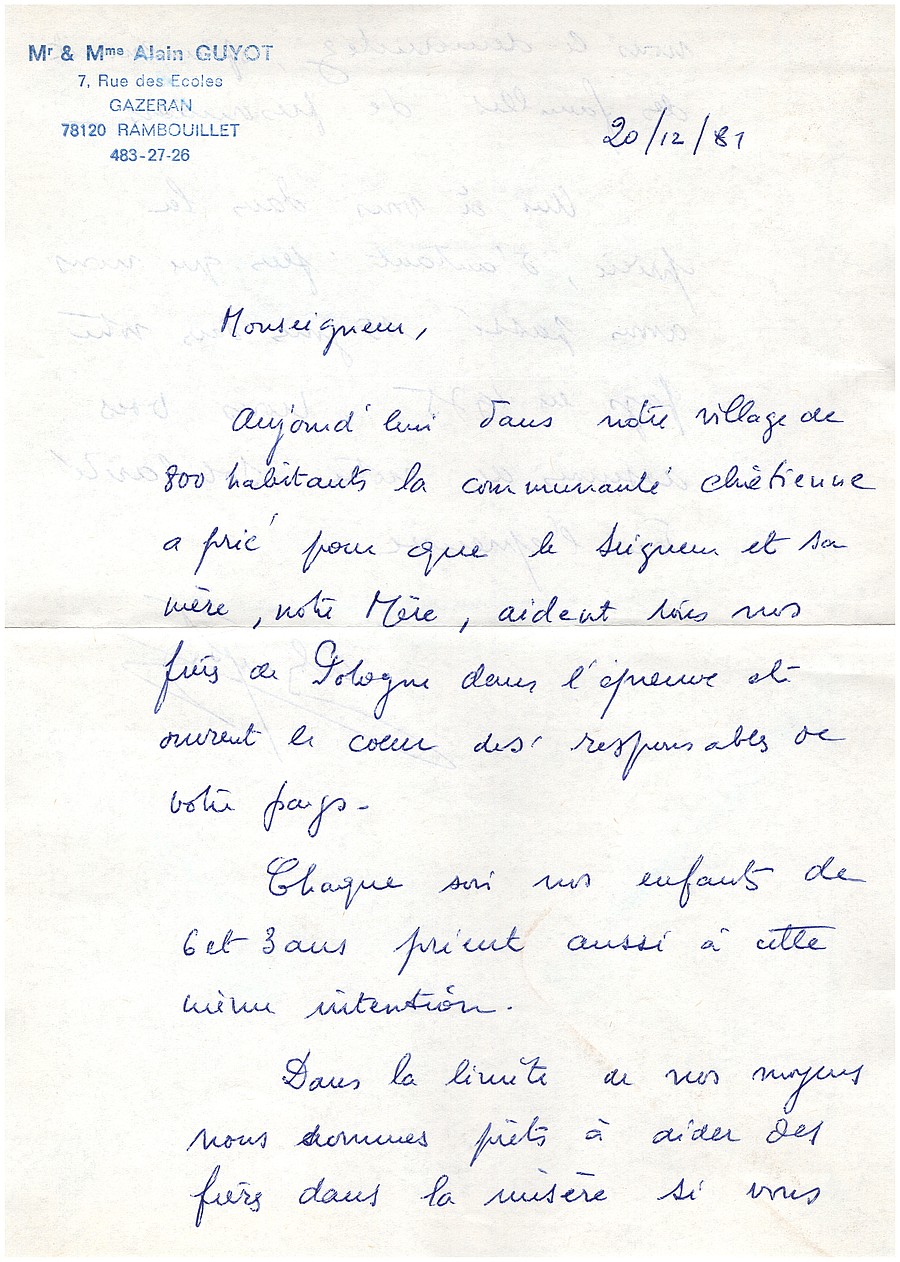 Mr & Mme Alain GUYOT
7, Rue des Ecoles
GAZERAN
78120 RAMBOUILLET
483-27-26
20/12/81
Monseigneur,
Aujourd'hui dans notre village de
800 habitants la communauté chrétienne
a prié pour que le Seigneur et sa
mère, notre Mère, aident tous nos
frères de Pologne dans l'épreuve et
ouvrent le coeur des responsables de
votre pays.
Chaque soir nos enfants de
6 et 3 ans prient aussi à cette
même intention.
Dans la limite de nos moyens
nous sommes prêts à aider des
frères dans la misère si vous